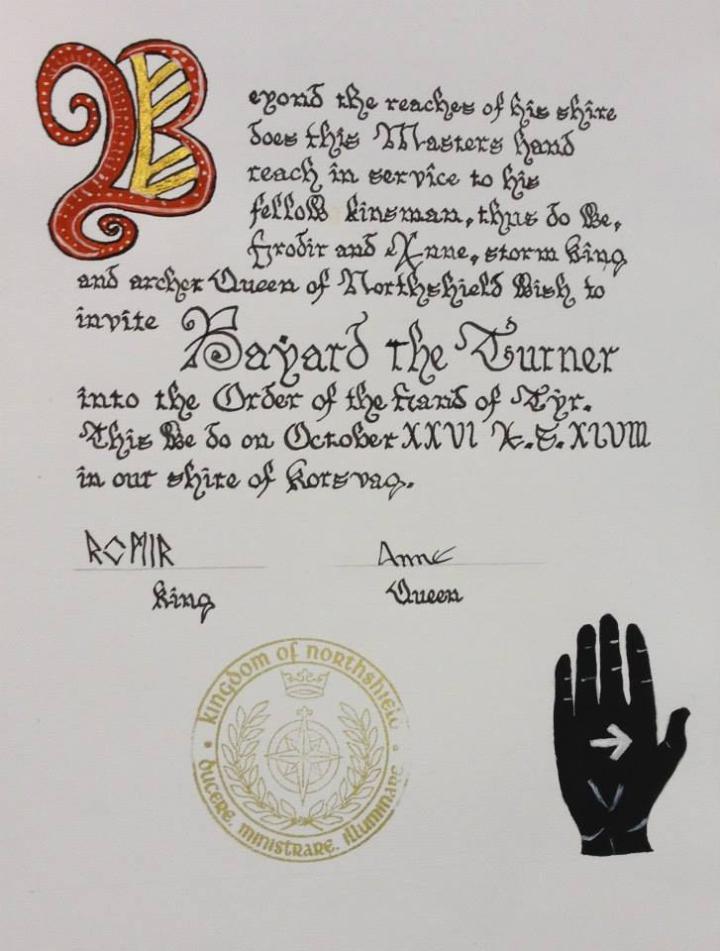 Beyond the reaches of his shire
does this Masters hand
reach in service to his
fellow kinsman, thus do We,
Hrodir and Anne, storm King
and archer Queen of Northshield Wish to
invite Bayard the Turner
into the Order of the Hand of Tyr.
This We do on October XXVI A.S. XLVIII
in our shire of Korsvag.
Anne
King Queen
kingdom of northshield
ducere, ministrare, illuminare